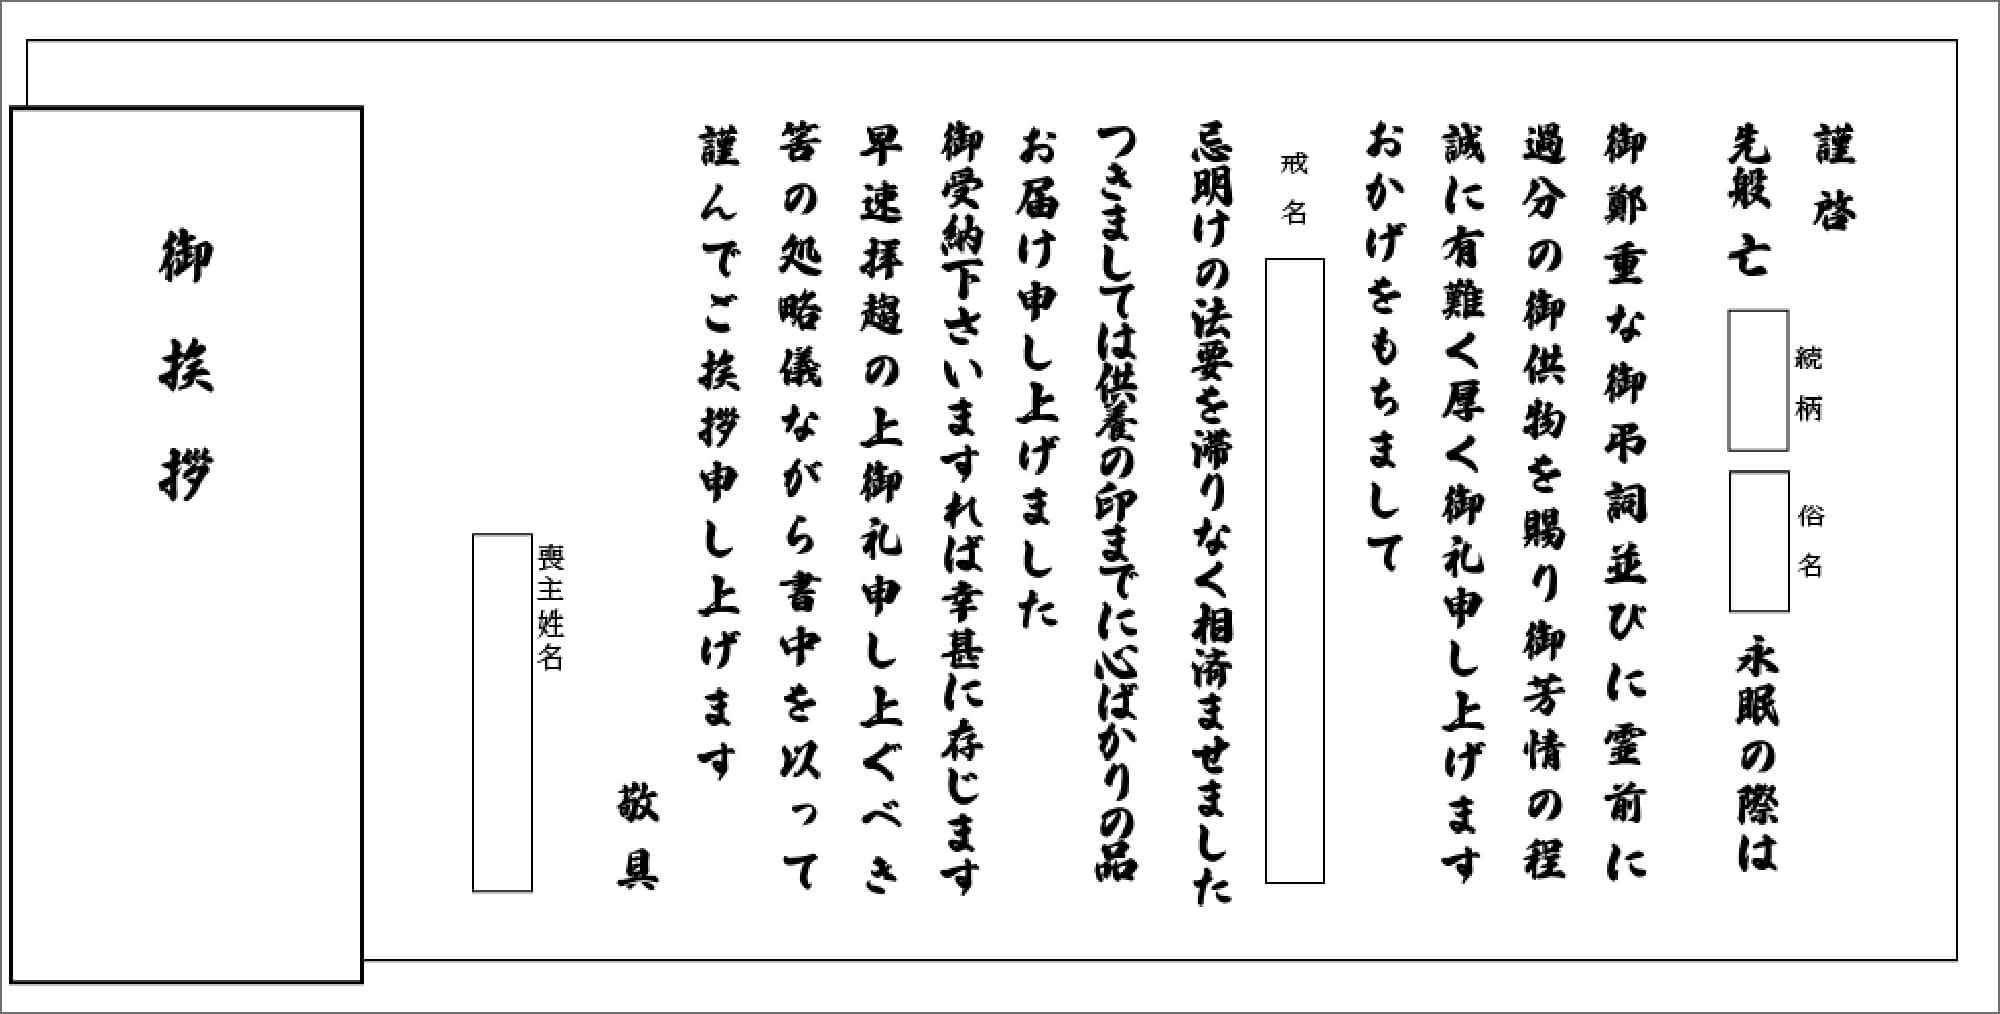 謹啓
先般 亡 永眠の際は
続柄
俗名
御鄭重な御弔詞並びに霊前に
過分の御供物を賜り御芳情の程
誠に有難く厚く御礼申し上げます
おかげをもちまして
戒名
忌明けの法要を滞りなく相済ませました
つきましては供養の印までに心ばかりの品
お届け申し上げました
御受納下さいますれば幸甚に存じます
早速拝趨の上御礼申し上ぐべき
筈の処略儀ながら書中を以って
謹んでご挨拶申し上げます
敬具
喪主姓名
御挨拶